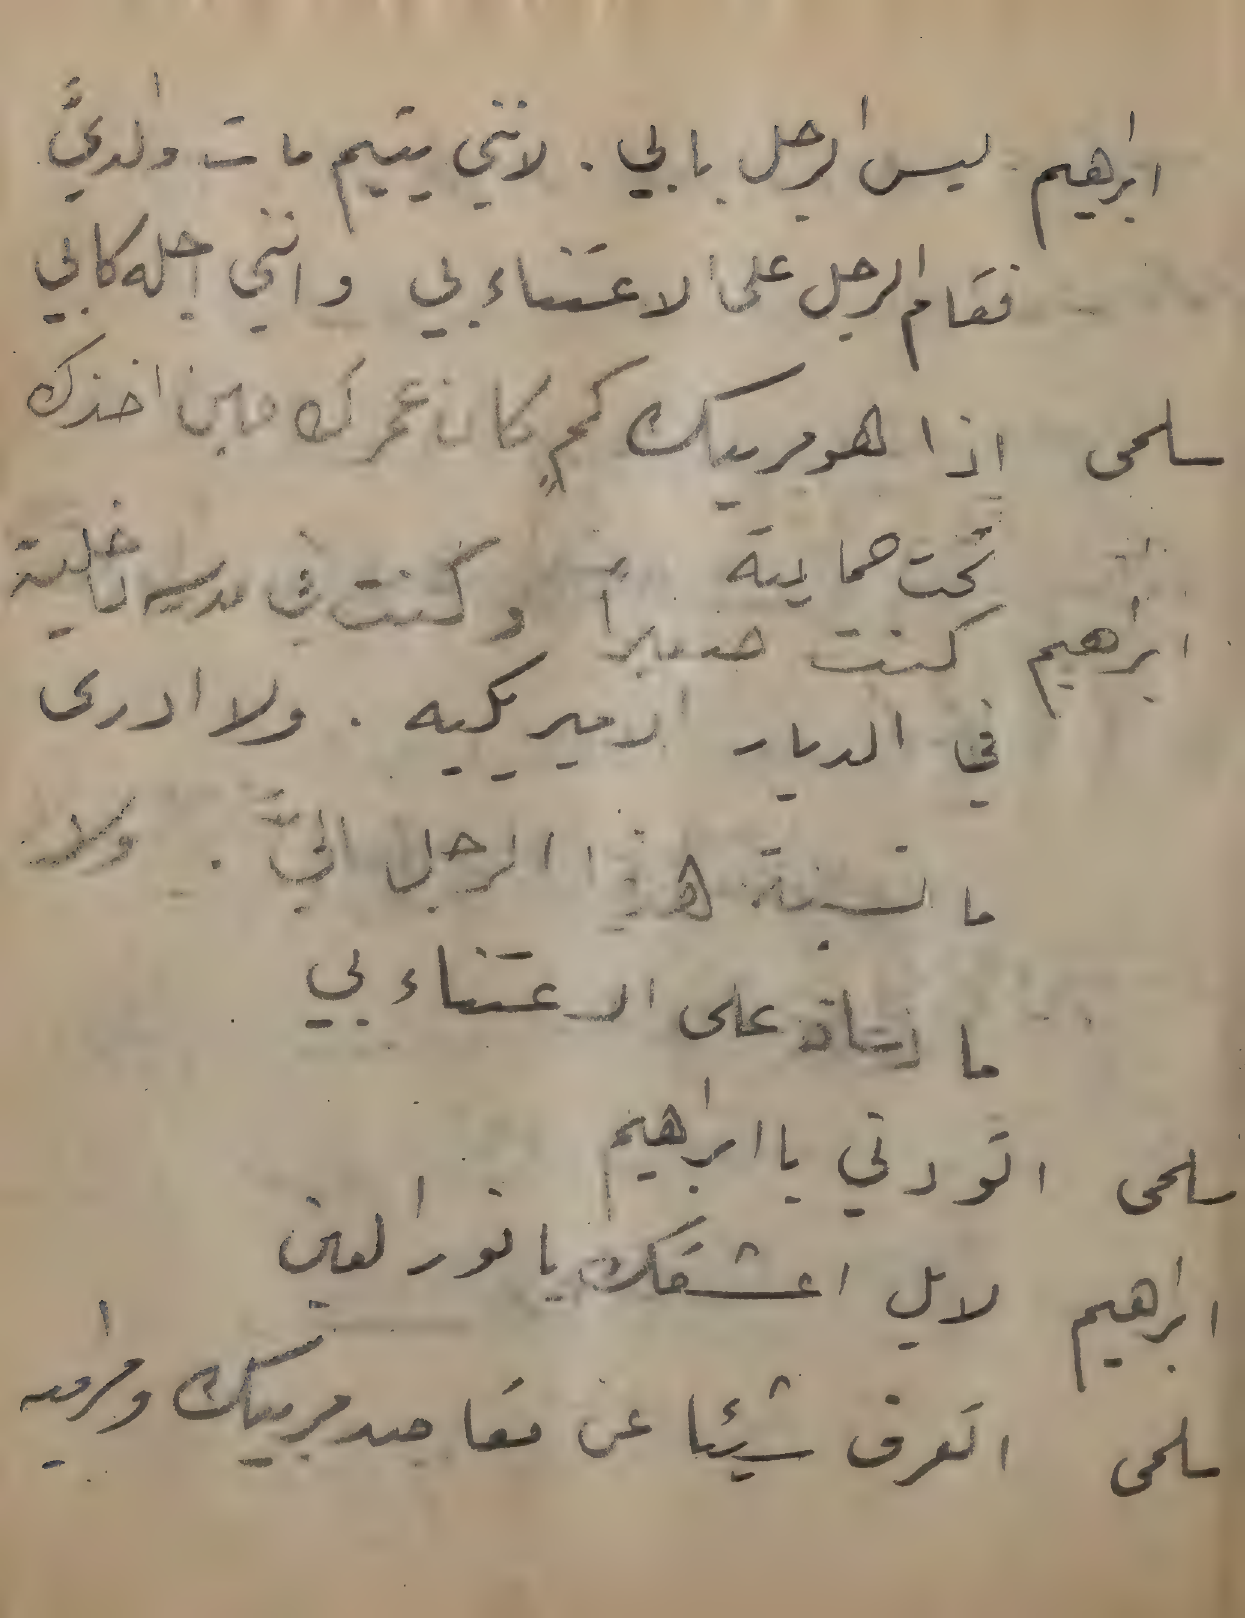 ابرهيم ليس الرجل بابي . لانني يتيم مات والديَّ
فقام الرجل على الاعتناء بي وانني اجله كابي
سلمى اذا هو مربيك كم كان عمرك حين اخذك
تحت حمايته
ابراهيم كنت صغيراً وكنت في مدرسه داخلية
في الديار الاميريكيه . ولا ادرى
ما نسبة هذا الرجل اليَّ . ولا
ما على الاعتناء بي
سلمى اتودني يا ابراهيم
ابراهيم لا بل اعشقك يا نور العين
سلمى اتعرف شيئا عن مقاصد مربيك ومراميه